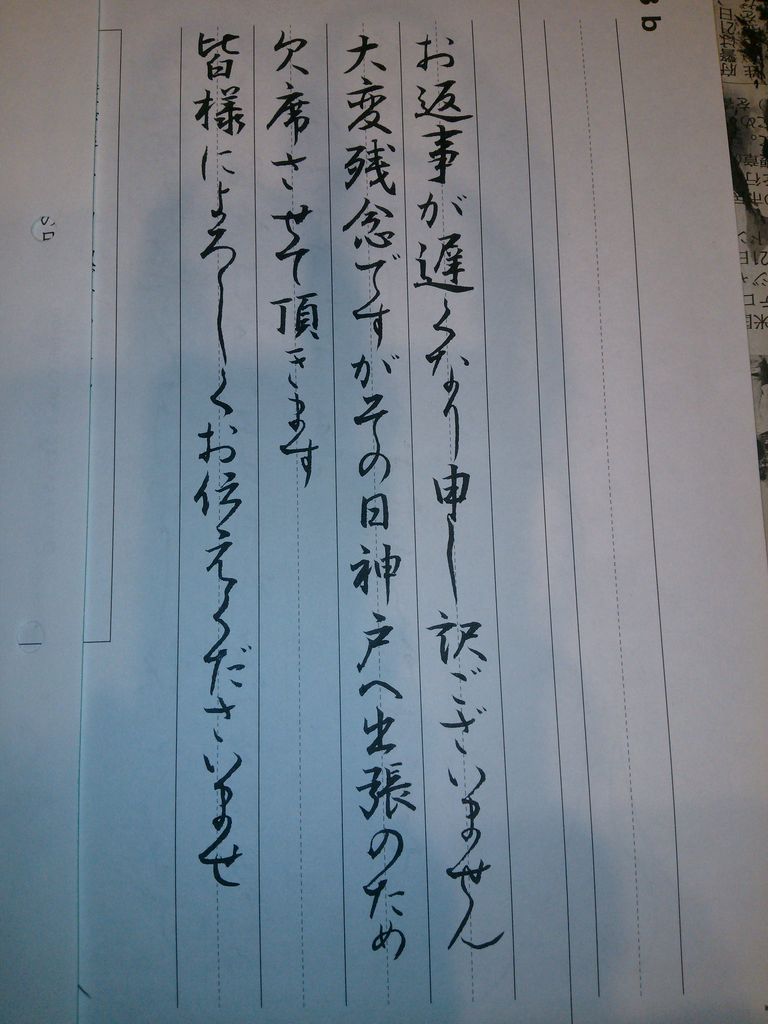 お返事が遅くなり申し訳ございません
大変残念ですがその日神戸へ出張のため
欠席させて頂きます
皆様によろしくお伝えくださいませ